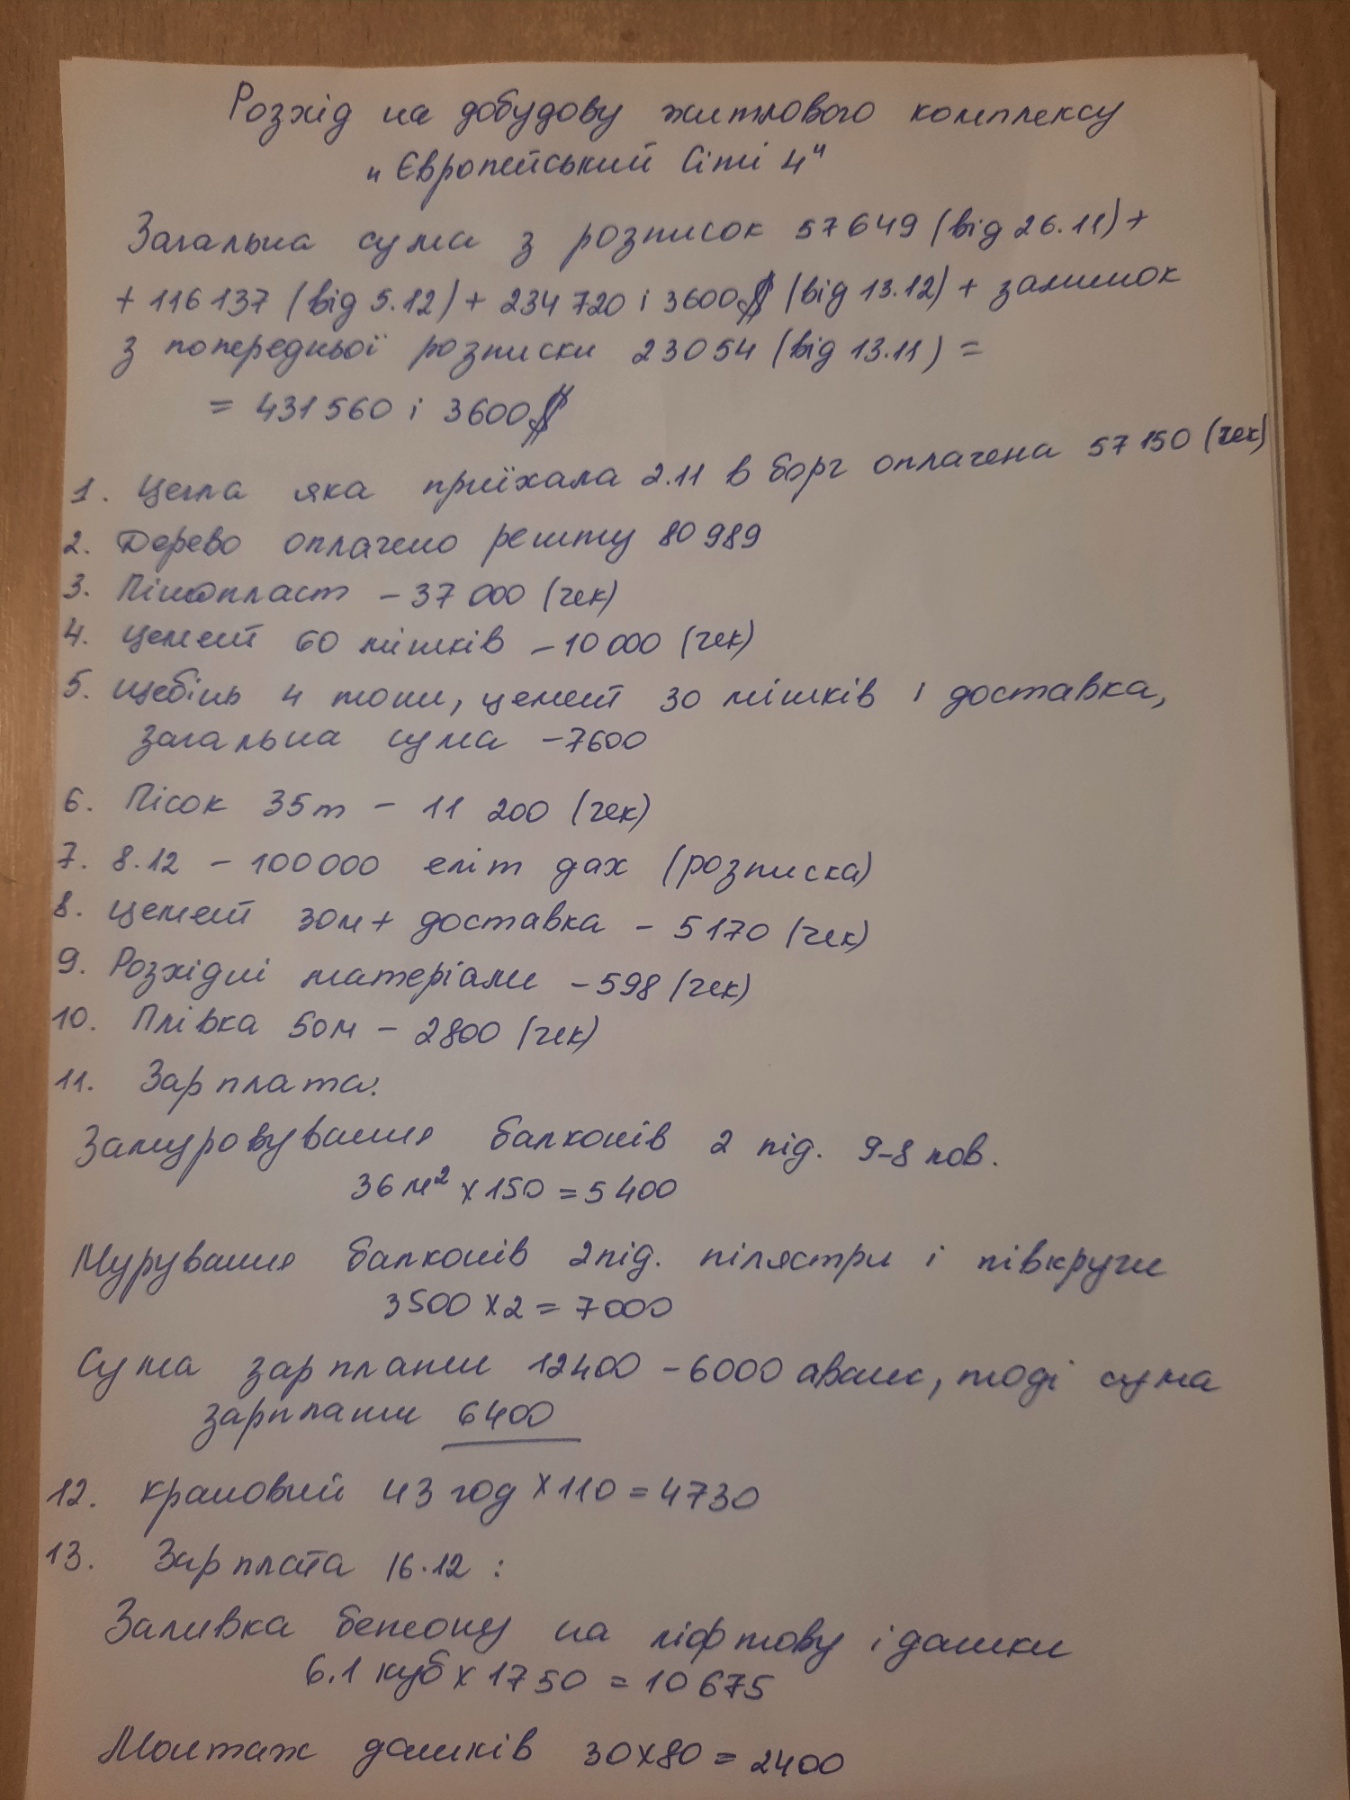 Розхід на добудову житлового комплексу
"Європейський Сіті 4"
Загальна сума з розписок 57649 (від 26.11) +
+ 116137 (від 5.12) + 234720 і 3600$ (від 13.12) + залишок
з попередньої розписки 23054 (від 13.11) =
= 431560 і 3600$
1. Цегла яка приїхала 2.11 в борг оплачена 57150 (чек)
2. Дерево оплачено решту 80989
3. Пінопласт - 37000 (чек)
4. Цемент 60 мішків - 10000 (чек)
5. Щебінь 4 тони, цемент 30 мішків і доставка,
загальна сума - 7600
6. Пісок 35т - 11 200 (чек)
7. 8.12 - 100000 еліт дах (розписка)
8. Цемент 30м + доставка - 5170 (чек)
9. Розхідні матеріали - 598 (чек)
10. Плівка 50м - 2800 (чек)
11. Зарплата:
Замуровування балконів 2 під. 9-8 пов.
36 м² x 150 = 5400
Мурування балконів 2 під. пілястри і півкруги
3500 x 2 = 7000
Сума зарплати 12400 - 6000 аванс, тоді сума
зарплати 6400
12. Крановий 43 год x 110 = 4730
13. Зарплата 16.12 :
Заливка бетону на ліфтову і дашки
6.1 куб x 1750 = 10675
Монтаж дашків 30x80 = 2400